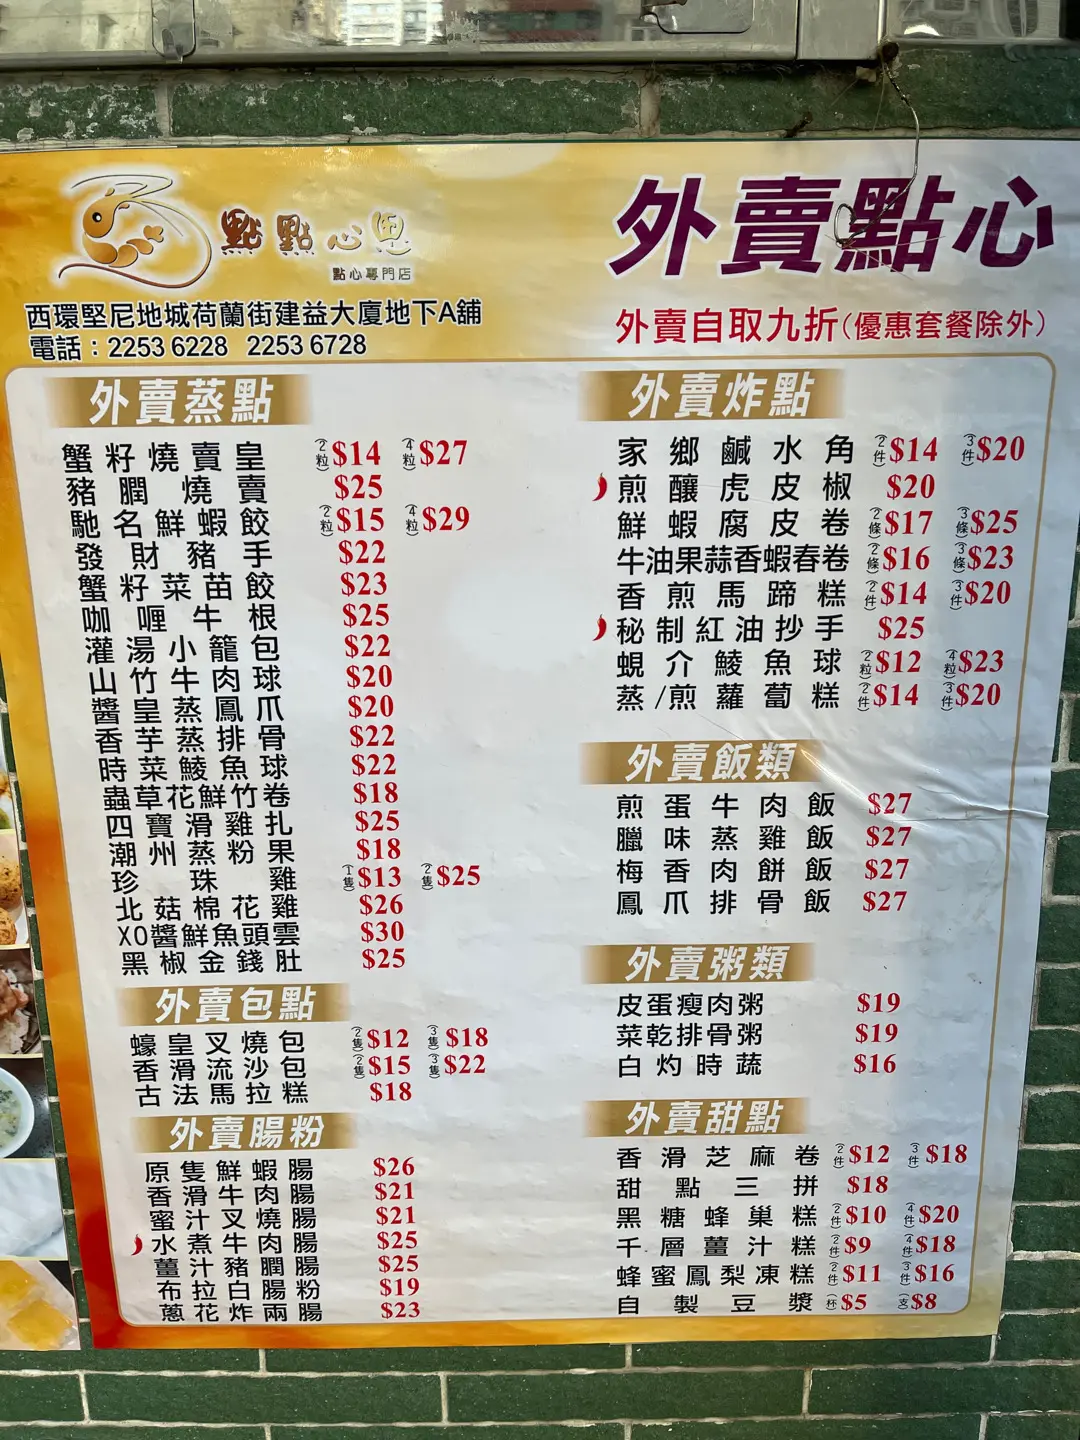 點點心思
點心專門店
西環堅尼地城荷蘭街建益大廈地下A舖
電話：2253 6228 2253 6728
外賣點心
外賣自取九折(優惠套餐除外)
外賣蒸點
蟹籽燒賣皇 (2粒)$14 (4粒)$27
豬膶燒賣 $25
馳名鮮蝦餃 (2粒)$15 (4粒)$29
發財豬手 $22
蟹籽菜苗餃 $23
咖喱牛根 $25
灌湯小籠包 $22
山竹牛肉球 $20
醬皇蒸鳳爪 $20
香芋蒸排骨 $22
時菜鯪魚球 $22
蟲草花鮮竹卷 $18
四寶滑雞扎 $25
潮州蒸粉果 $18
珍珠雞 (1隻)$13 (2隻)$25
北菇棉花雞 $26
XO醬鮮魚頭雲 $30
黑椒金錢肚 $25
外賣包點
蠔皇叉燒包 (2隻)$12 (3隻)$18
香滑流沙包 (2隻)$15 (3隻)$22
古法馬拉糕 $18
外賣腸粉
原隻鮮蝦腸 $26
香滑牛肉腸 $21
蜜汁叉燒腸 $21
水煮牛肉腸 $25
薑汁豬膶腸 $25
布拉白腸粉 $19
蔥花炸兩腸 $23
外賣炸點
家鄉鹹水角 (2件)$14 (3件)$20
煎釀虎皮椒 $20
鮮蝦腐皮卷 (2條)$17 (3條)$25
牛油果蒜香蝦春卷 (2條)$16 (3條)$23
香煎馬蹄糕 (2件)$14 (3件)$20
秘制紅油抄手 $25
蜆介鯪魚球 (2粒)$12 (4粒)$23
蒸/煎蘿蔔糕 (2件)$14 (3件)$20
外賣飯類
煎蛋牛肉飯 $27
臘味蒸雞飯 $27
梅香肉餅飯 $27
鳳爪排骨飯 $27
外賣粥類
皮蛋瘦肉粥 $19
菜乾排骨粥 $19
白灼時蔬 $16
外賣甜點
香滑芝麻卷 (2件)$12 (3件)$18
甜點三拼 $18
黑糖蜂巢糕 (2件)$10 (4件)$20
千層薑汁糕 (2件)$9 (4件)$18
蜂蜜鳳梨凍糕 (2件)$11 (3件)$16
自製豆漿 (杯)$5 (支)$8